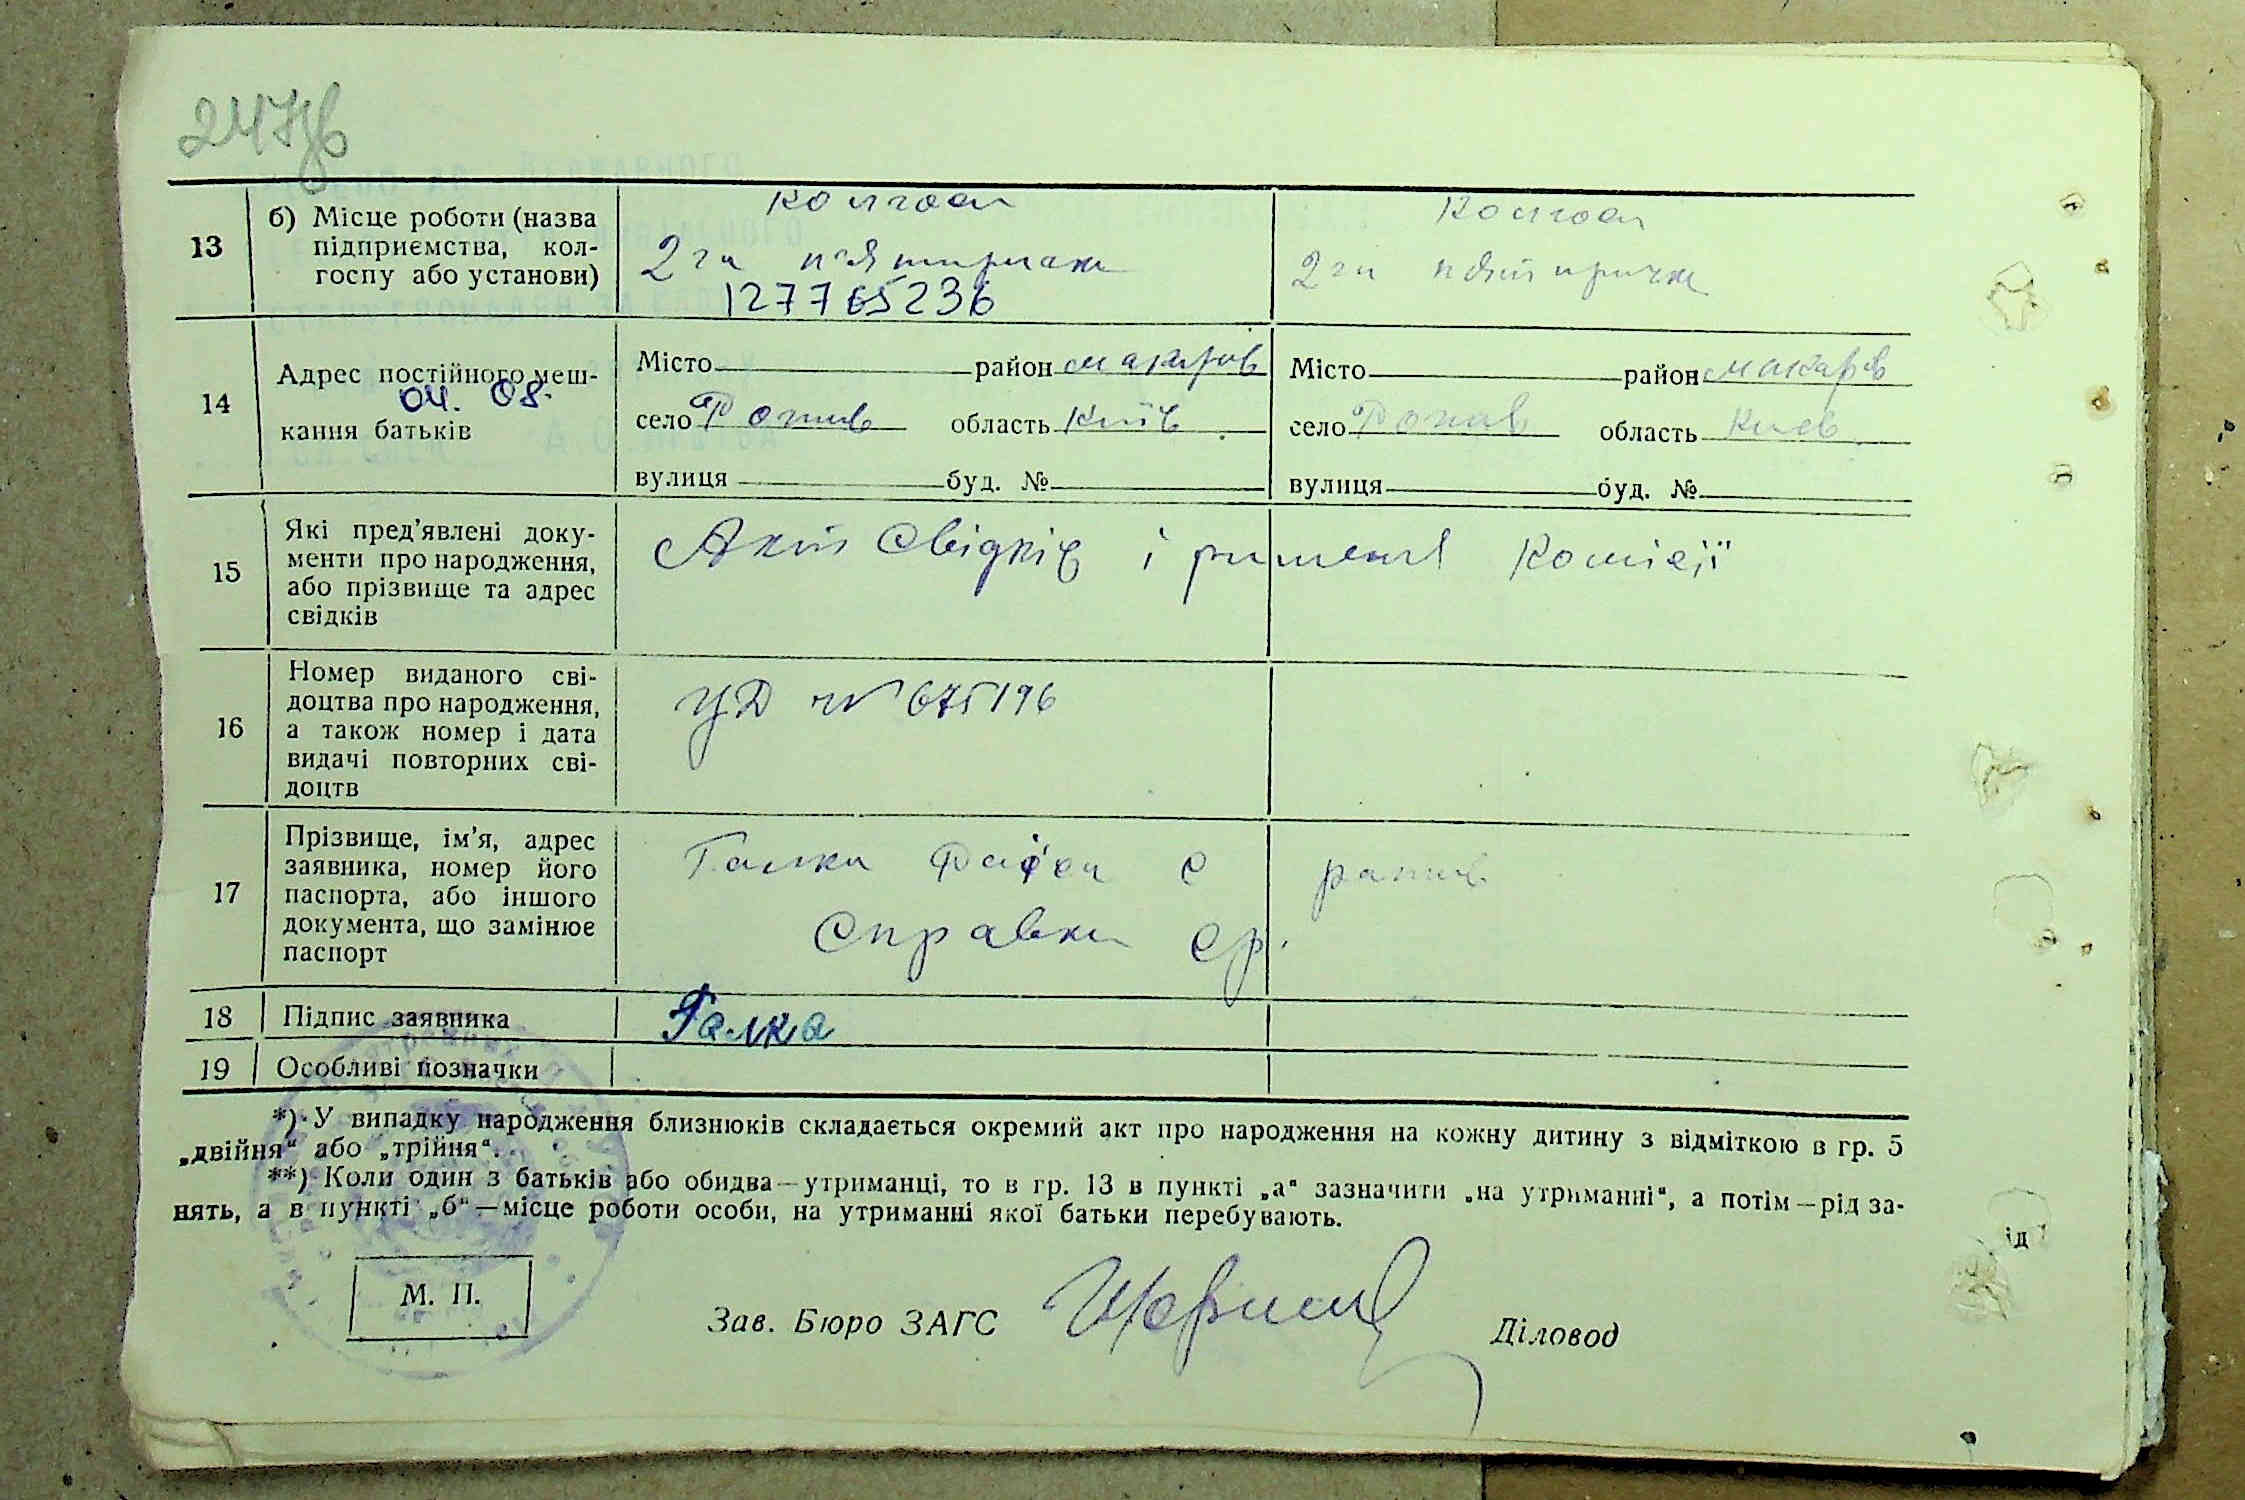 247
колгосп
колгосп
13
б) Місце роботи (назва
підприємства, кол-
госпу або установи)
2га п'ятирічка
2га пятирічка
127765236
14
Адрес постійного меш-
04. 08.
кання батьків
Місто район Макарів
село Рожів область Київ
вулиця буд. №
Місто район Макарів
село Рожів область Киев
вулиця буд. №
15
Які пред'явлені доку-
менти про народження,
або прізвище та адрес
свідків
Акт свідків і рішення Комісії
16
Номер виданого сві-
доцтва про народження,
а також номер і дата
видачі повторних сві-
доцтв
УД № 675196
17
Прізвище, ім'я, адрес
заявника, номер його
паспорта, або іншого
документа, що замінює
паспорт
Галка с Рожів
Справка ср.
18
Підпис заявника
Галка
19
Особливі позначки
*) У випадку народження близнюків складається окремий акт про народження на кожну дитину з відміткою в гр. 5
„двійня“ або „трійня“.
**) Коли один з батьків або обидва—утриманці, то в гр. 13 в пункті „а“ зазначити „на утриманні“, а потім—рід за-
нять, а в пункті „б“—місце роботи особи, на утриманні якої батьки перебувають.
М. П.
Зав. Бюро ЗАГС
Діловод